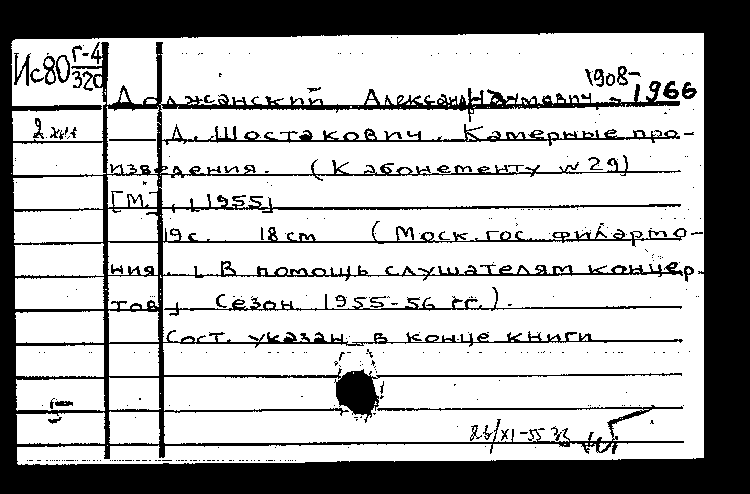 Ис80 Г-4/320
1908-1966
Должанский, Александр Наумович,
2 экз
Д. Шостакович. Камерные про-
изведения. (К абонементу № 29)
[М.], [1955]
19 с. 18 см (Моск. гос. филармо-
ния. [В помощь слушателям концер-
тов]. Сезон 1955-56 гг.).
Сост. указан в конце книги
5
26/XI-55